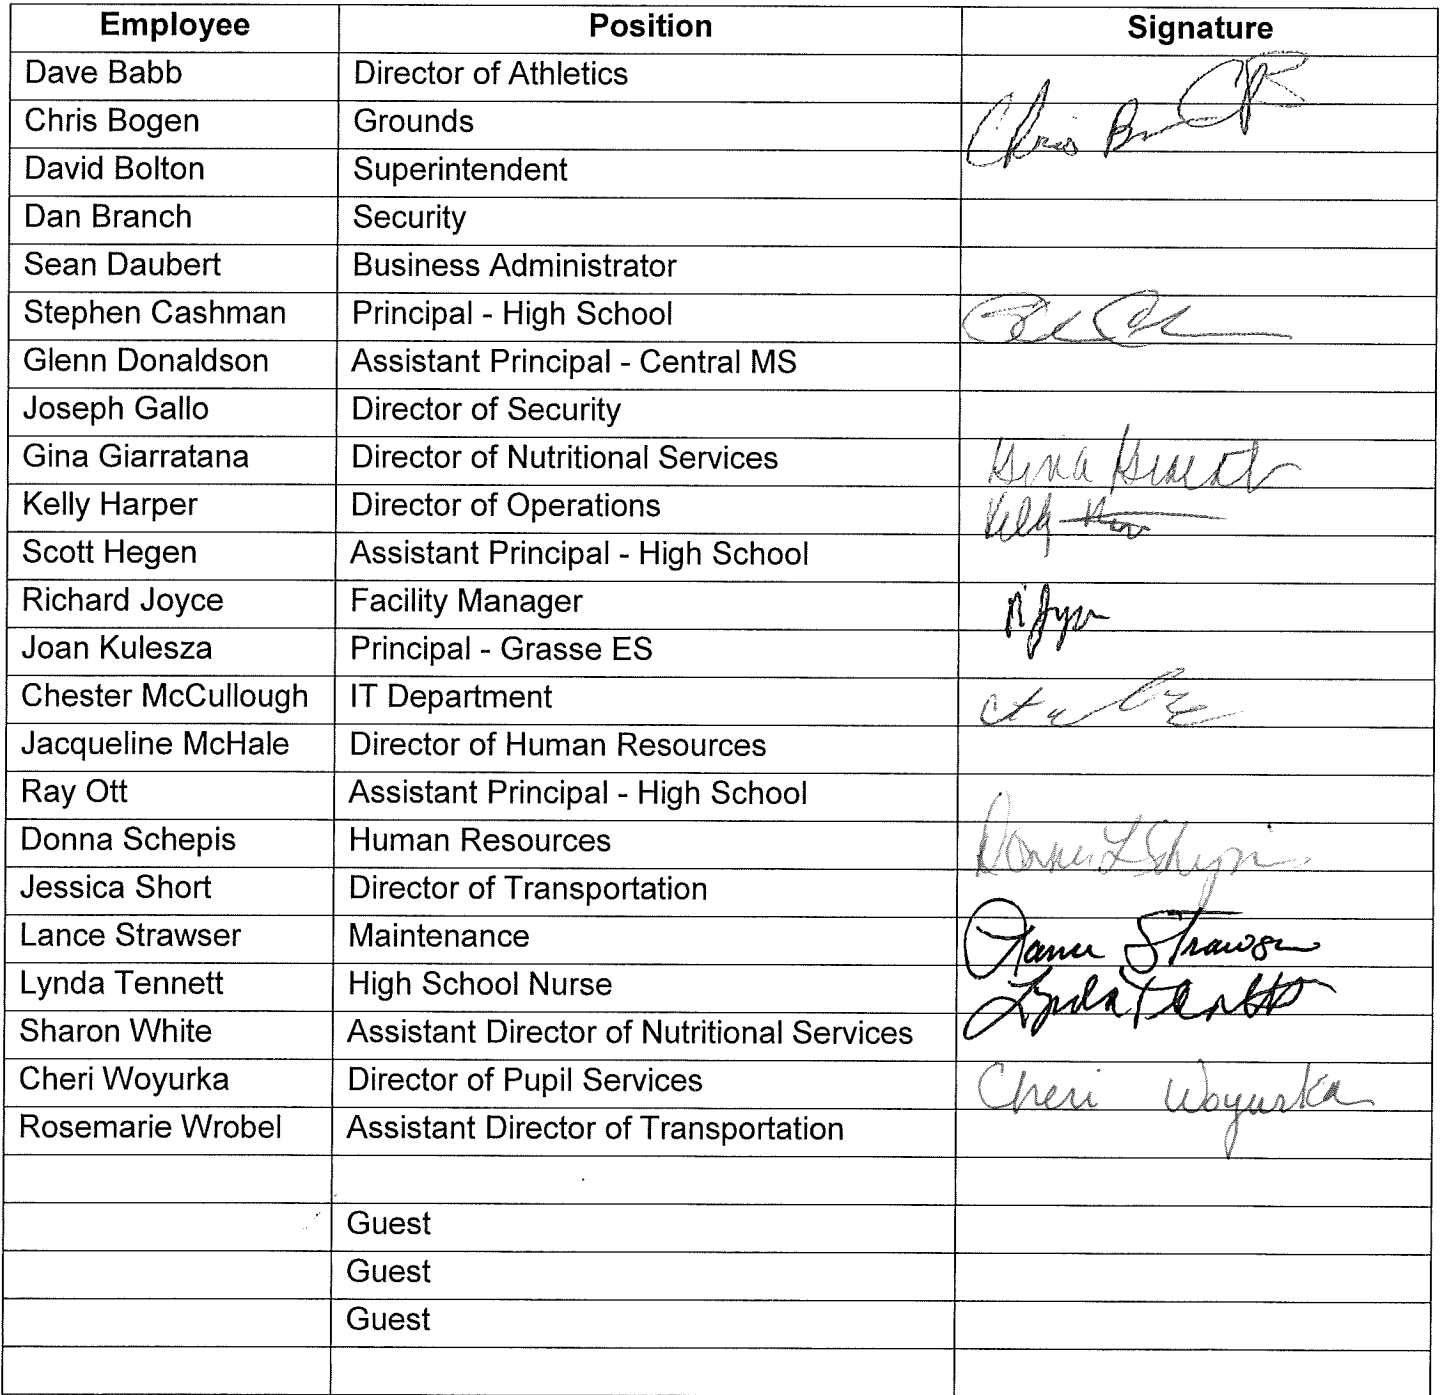 Employee Position Signature
Dave Babb Director of Athletics
Chris Bogen Grounds Chris B
David Bolton Superintendent
Dan Branch Security
Sean Daubert Business Administrator
Stephen Cashman Principal - High School
Glenn Donaldson Assistant Principal - Central MS
Joseph Gallo Director of Security
Gina Giarratana Director of Nutritional Services Gina
Kelly Harper Director of Operations Kelly
Scott Hegen Assistant Principal - High School
Richard Joyce Facility Manager
Joan Kulesza Principal - Grasse ES
Chester McCullough IT Department
Jacqueline McHale Director of Human Resources
Ray Ott Assistant Principal - High School
Donna Schepis Human Resources Donna L Schepis
Jessica Short Director of Transportation
Lance Strawser Maintenance Lance Strawser
Lynda Tennett High School Nurse Lynda Tennett
Sharon White Assistant Director of Nutritional Services
Cheri Woyurka Director of Pupil Services Cheri Woyurka
Rosemarie Wrobel Assistant Director of Transportation
Guest
Guest
Guest